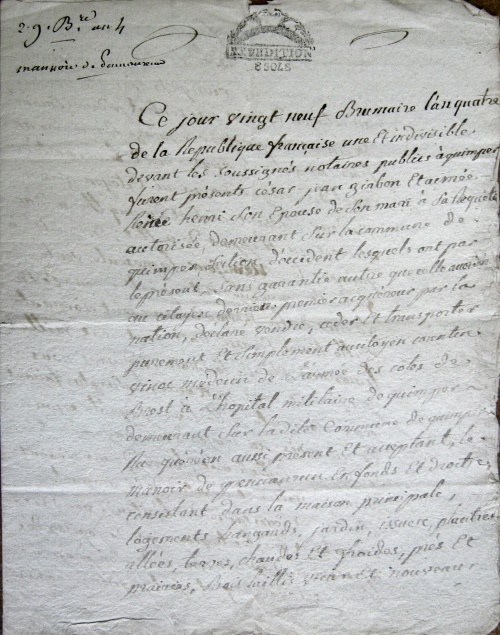 29 B.re an 4
manoir de
EXPEDITION
8 SOLS
Ce jour vingt neuf Brumaire l'an quatre
de la Republique française une et indivisible
devant les soussignés notaires publics à quimper
furent présents césar jean giabon et aimée
Renée henri son epouse de son mari a sa Requete
autorisée, demeurant sur la commune de
quimper, Section d'occident lesquels ont par
le présent, sans garantie autre que celle
au citoyen dernier premier acquéreur par la
nation, déclaré vendre, ceder et transporter
purement et simplement au citoyen
vinoc médecin de l'armée des cotes de
Brest à L'hopital militaire de quimper
demeurant sur la dite Commune de quimper
aussi present et acceptant, le
manoir de en fonds et droits,
consistant dans la maison principale,
logements, hangards, jardin, issues,
allées, terres, chaudes et froides, prés et
prairies, bois taillis et nouveaux